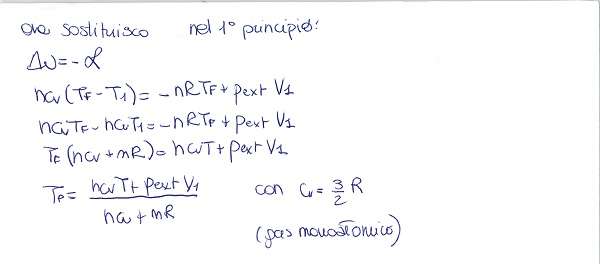 ora sostituisco nel 1° principio:
ΔU = - L
ncv (TF - T1) = - nRTF + pext V1
ncvTF - ncvT1 = - nRTF + pext V1
TF (ncv + nR) = ncvT + pext V1
TF = (ncvT + pext V1) / (ncv + nR) con cv = 3/2 R
(gas monoatomico)